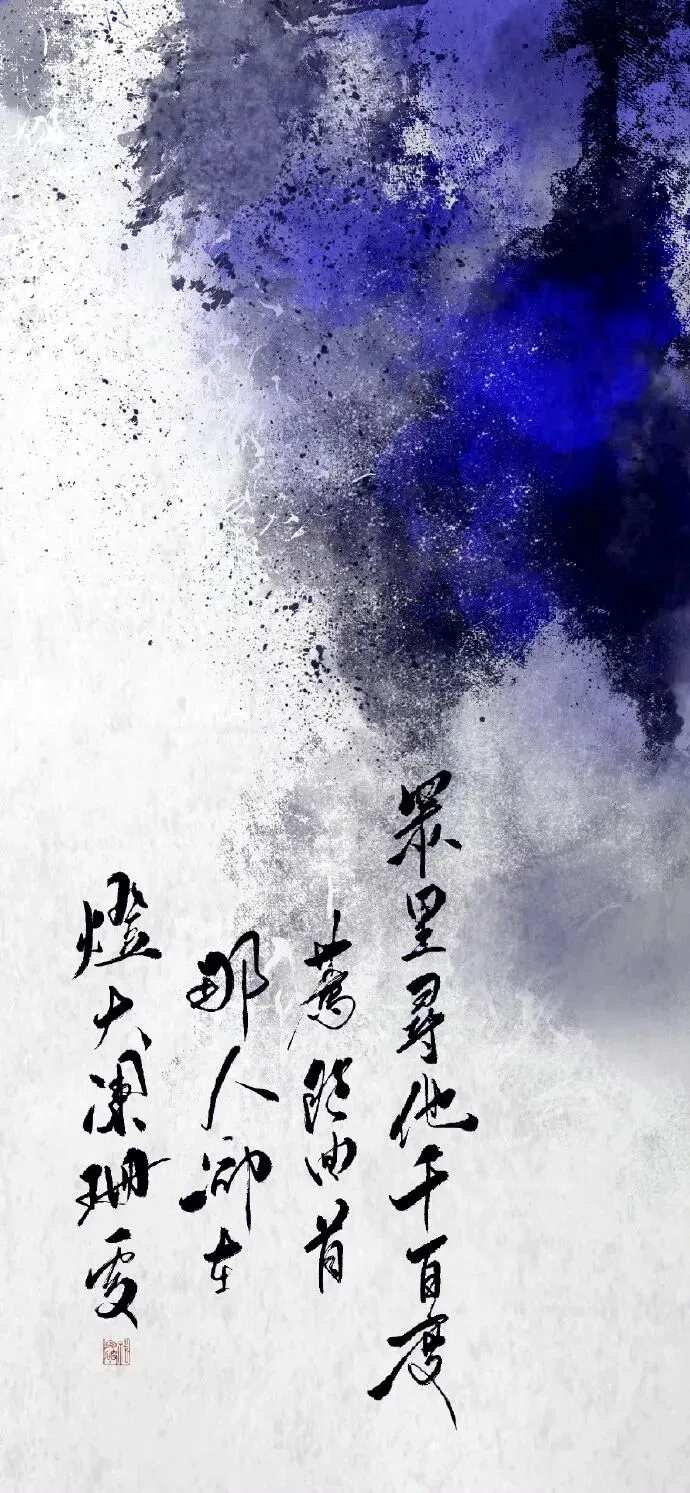 眾里尋他千百度
驀然回首
那人卻在
燈火闌珊處